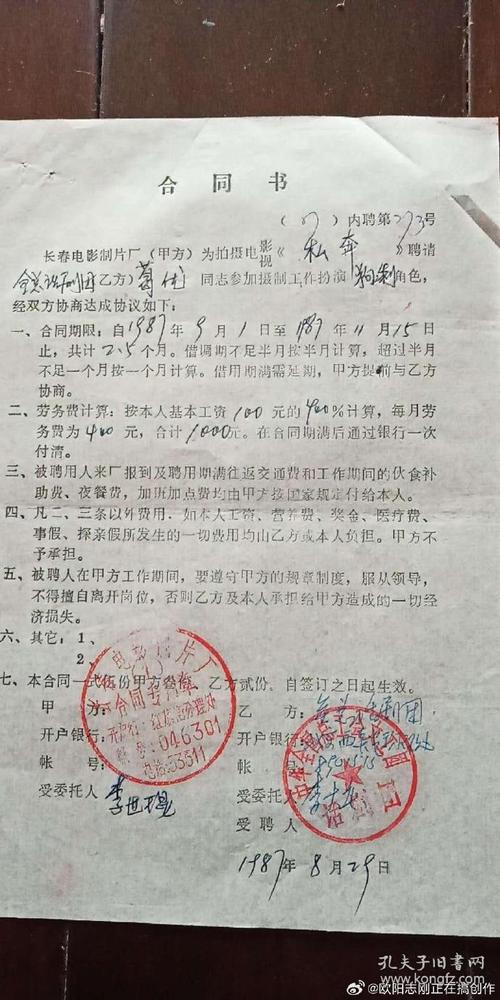 合同书
(87)内聘第273号
长春电影制片厂(甲方)为拍摄电影视《私奔》聘请
全总话剧团乙方)葛优同志参加摄制工作扮演角色,
经双方协商达成协议如下:
一、合同期限:自1987年9月1日至1987年11月15日
止,共计2.5个月。借调期不足半月按半月计算,超过半月
不足一个月按一个月计算。借用期满需延期,甲方提前与乙方
协商。
二、劳务费计算:按本人基本工资100元的400%计算,每月劳
务费为400元,合计1000元。在合同期满后通过银行一次
付清。
三、被聘用人来厂报到及聘用期满往返交通费和工作期间的伙食补
助费、夜餐费,加班加点费均由甲方按国家规定付给本人。
四、凡二、三条以外费用,如本人工资、营养费、奖金、医疗费、
事假、探亲假所发生的一切费用均由乙方或本人负担。甲方不
予承担。
五、被聘人在甲方工作期间,要遵守甲方的规章制度,服从领导,
不得擅自离开岗位,否则乙方及本人承担给甲方造成的一切经
济损失。
六、其它:1、
2、
七、本合同一式伍份甲方叁份,乙方贰份,自签订之日起生效。
甲方:
开户银行:
帐号:
受委托人
电影制片厂
合同专用章
开户行:红旗街办理处
帐号:046301
电话:53311
乙方:全总话剧团
开户银行:
帐号:
受委托人
受聘人
话剧团
1987年8月29日
孔夫子旧书网
www.kongfz.com
@欧阳志刚正在搞创作